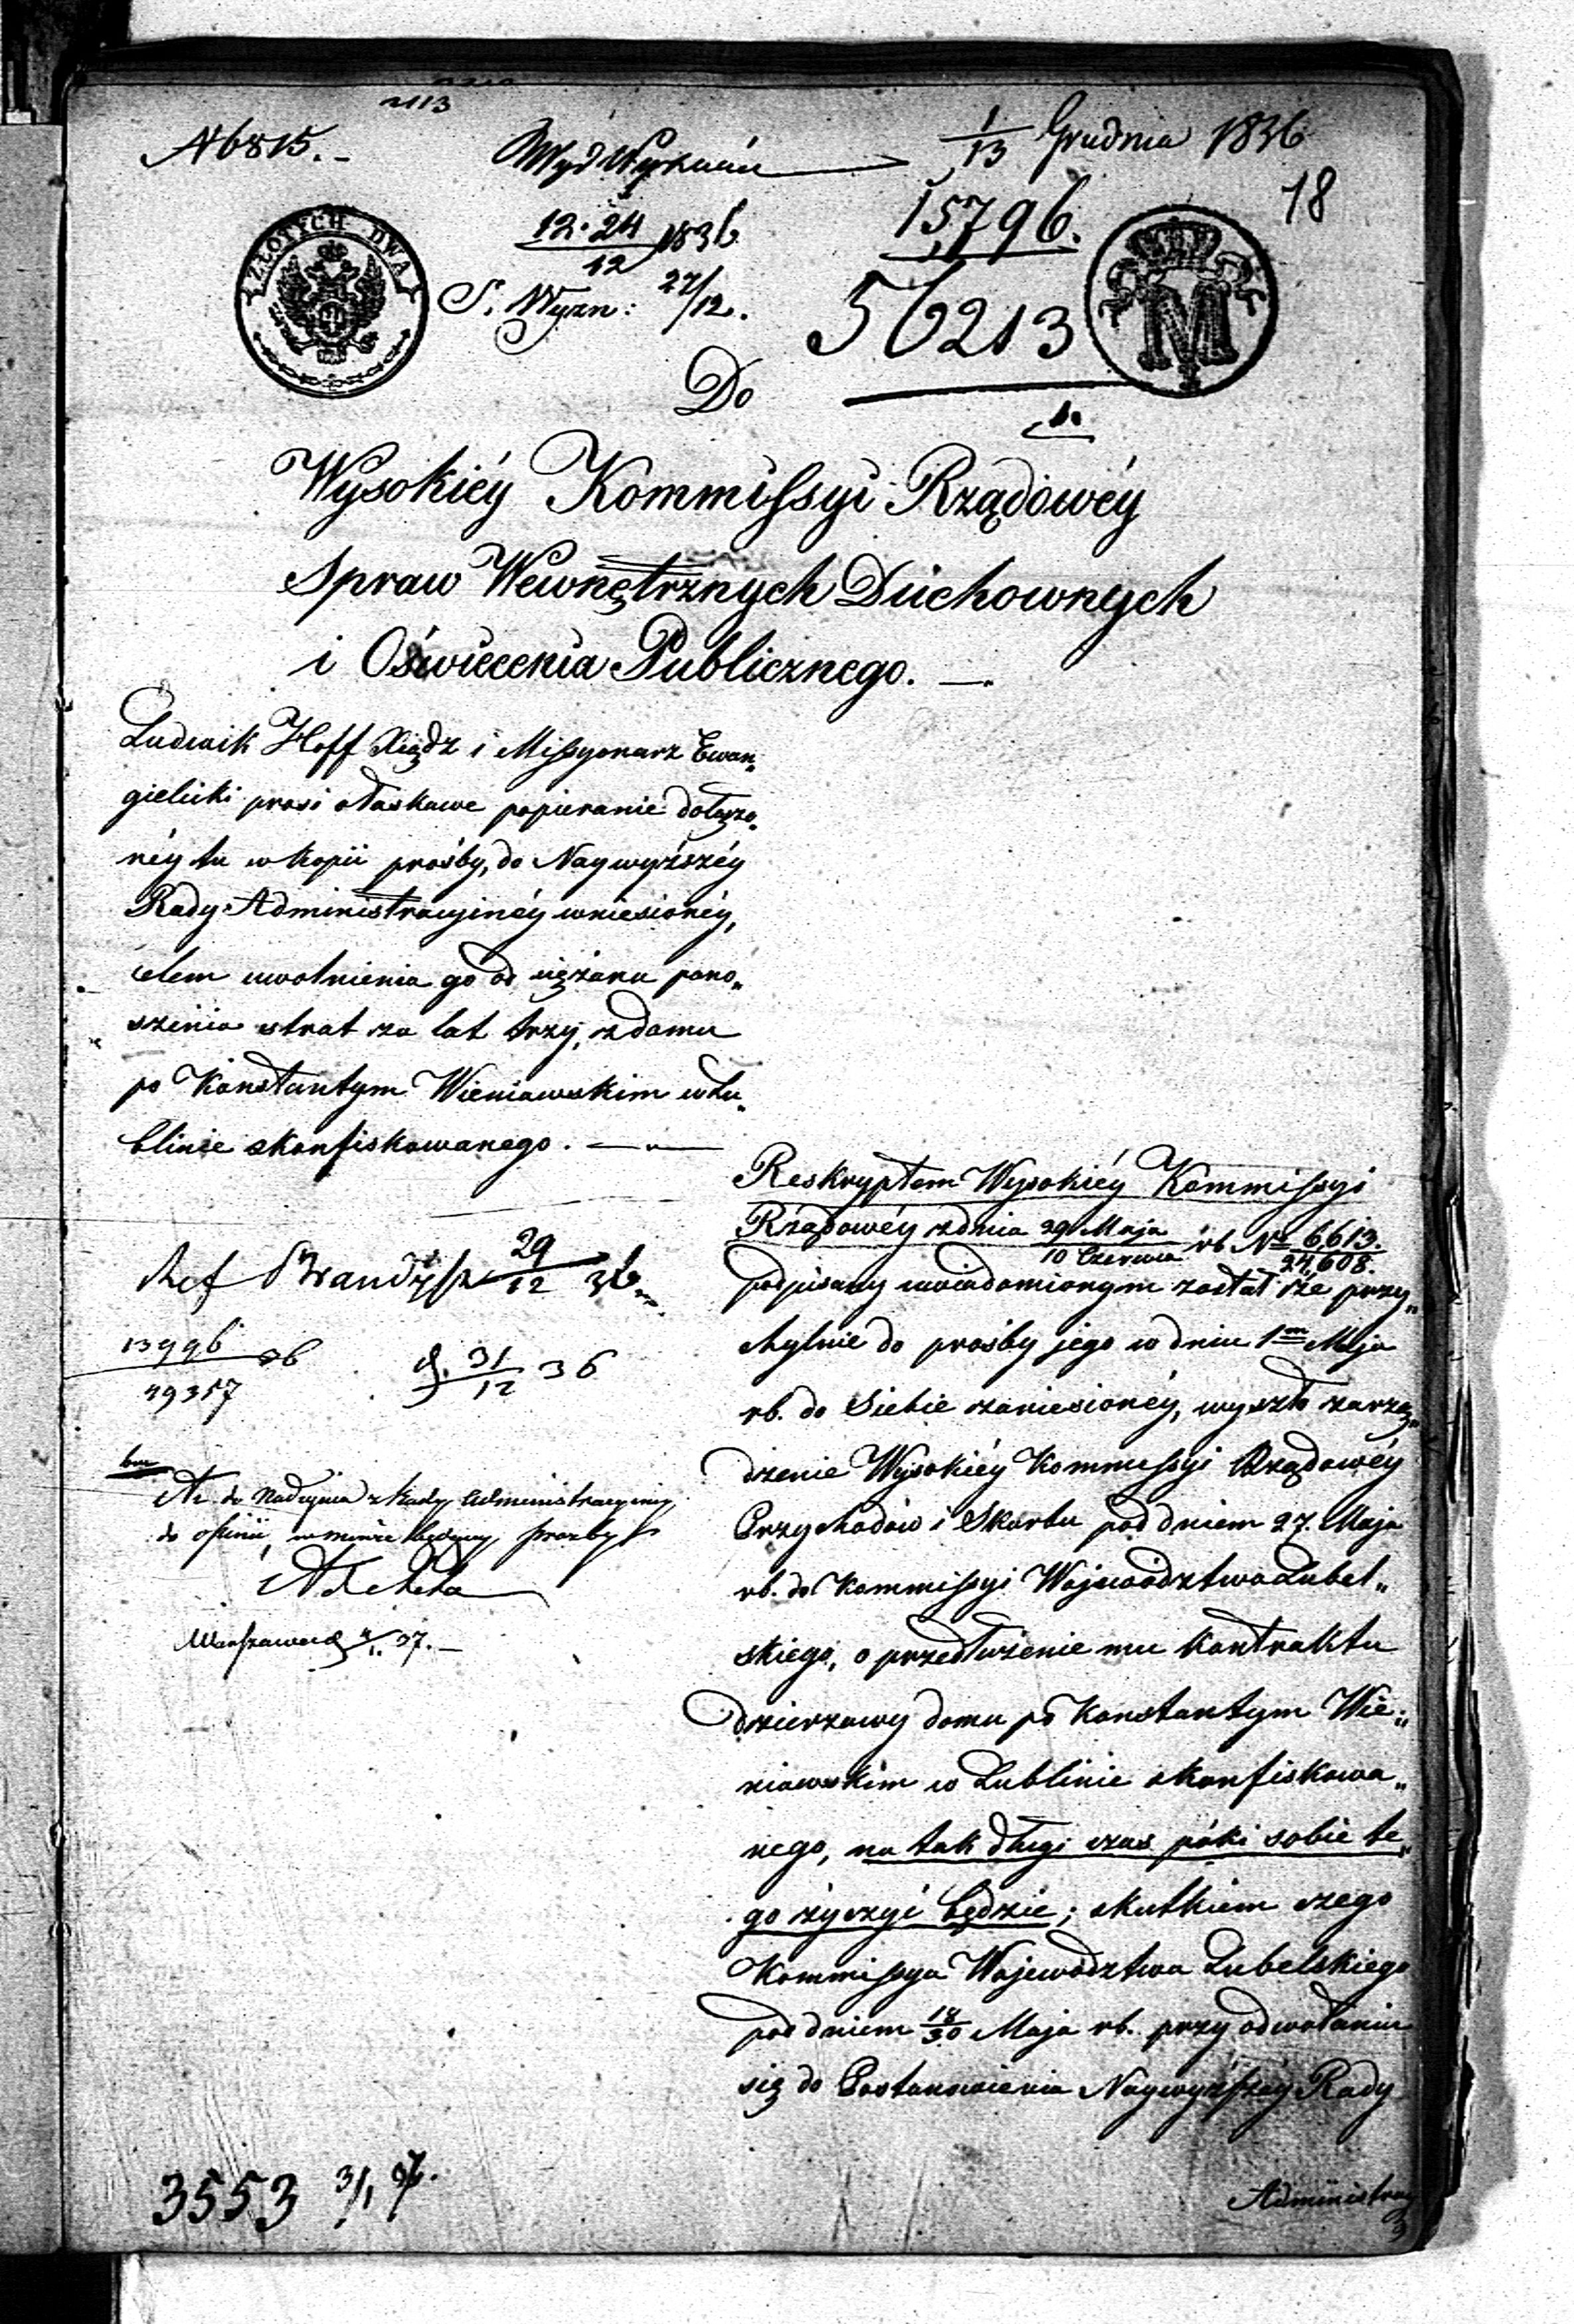 2113
N 6815.
Wyd Wyznań
1/13 Grudnia 1836
18
12.24/12 1836
15,796.
ZŁOTYCH DWA
S. Wyzn: 27/12.
56213
M
Do
1.
Wysokiéy Kommissyi Rządowéy
Spraw Wewnętrznych Duchownych
i Oświecenia Publicznego.
Ludwik Hoff Xiądz i Missyonarz Ewan„
gielicki prosi o łaskawe popieranie dołączo„
néy tu w kopii prośby, do Naywyższéy
Rady Administracyinéy wniesionéy,
celem uwolnienia go od ciężaru pono„
szenia strat za lat trzy, z domu
po Konstantym Wieniawskim w Lu„
blinie skonfiskowanego.
Ref 29/12 36
13996/49357 36
31/12 36
do nadejścia z Rady Administracyiney
do opinii, prozby
Warszawa 37.
3553 3/1 37.
Reskryptem Wysokiéy Kommissyi
Rządowéy z dnia 29 Maja/10 Czerwca rb No 6613./24,608.
podpisany uwiadomionym został że przy„
chylnie do prośby jego w dniu 1m Maja
rb. do Siebie zaniesionéy, wyszło zarzą„
dzenie Wysokiéy Kommissyi Rządowéy
Przychodów i Skarbu pod dniem 27. Maja
rb. do Kommissyi Województwa Lubel„
skiego, o przedłużenie mu kontraktu
dzierzawy domu po Konstantym Wie„
niawskim w Lublinie skonfiskowa„
nego, na tak długi czas póki sobie te„
go życzyć będzie; skutkiem czego
Kommissya Województwa Lubelskiego
pod dniem 18/30 Maja rb. przy odwołaniu
się do Postanowienia Naywyższéy Rady
Administracy